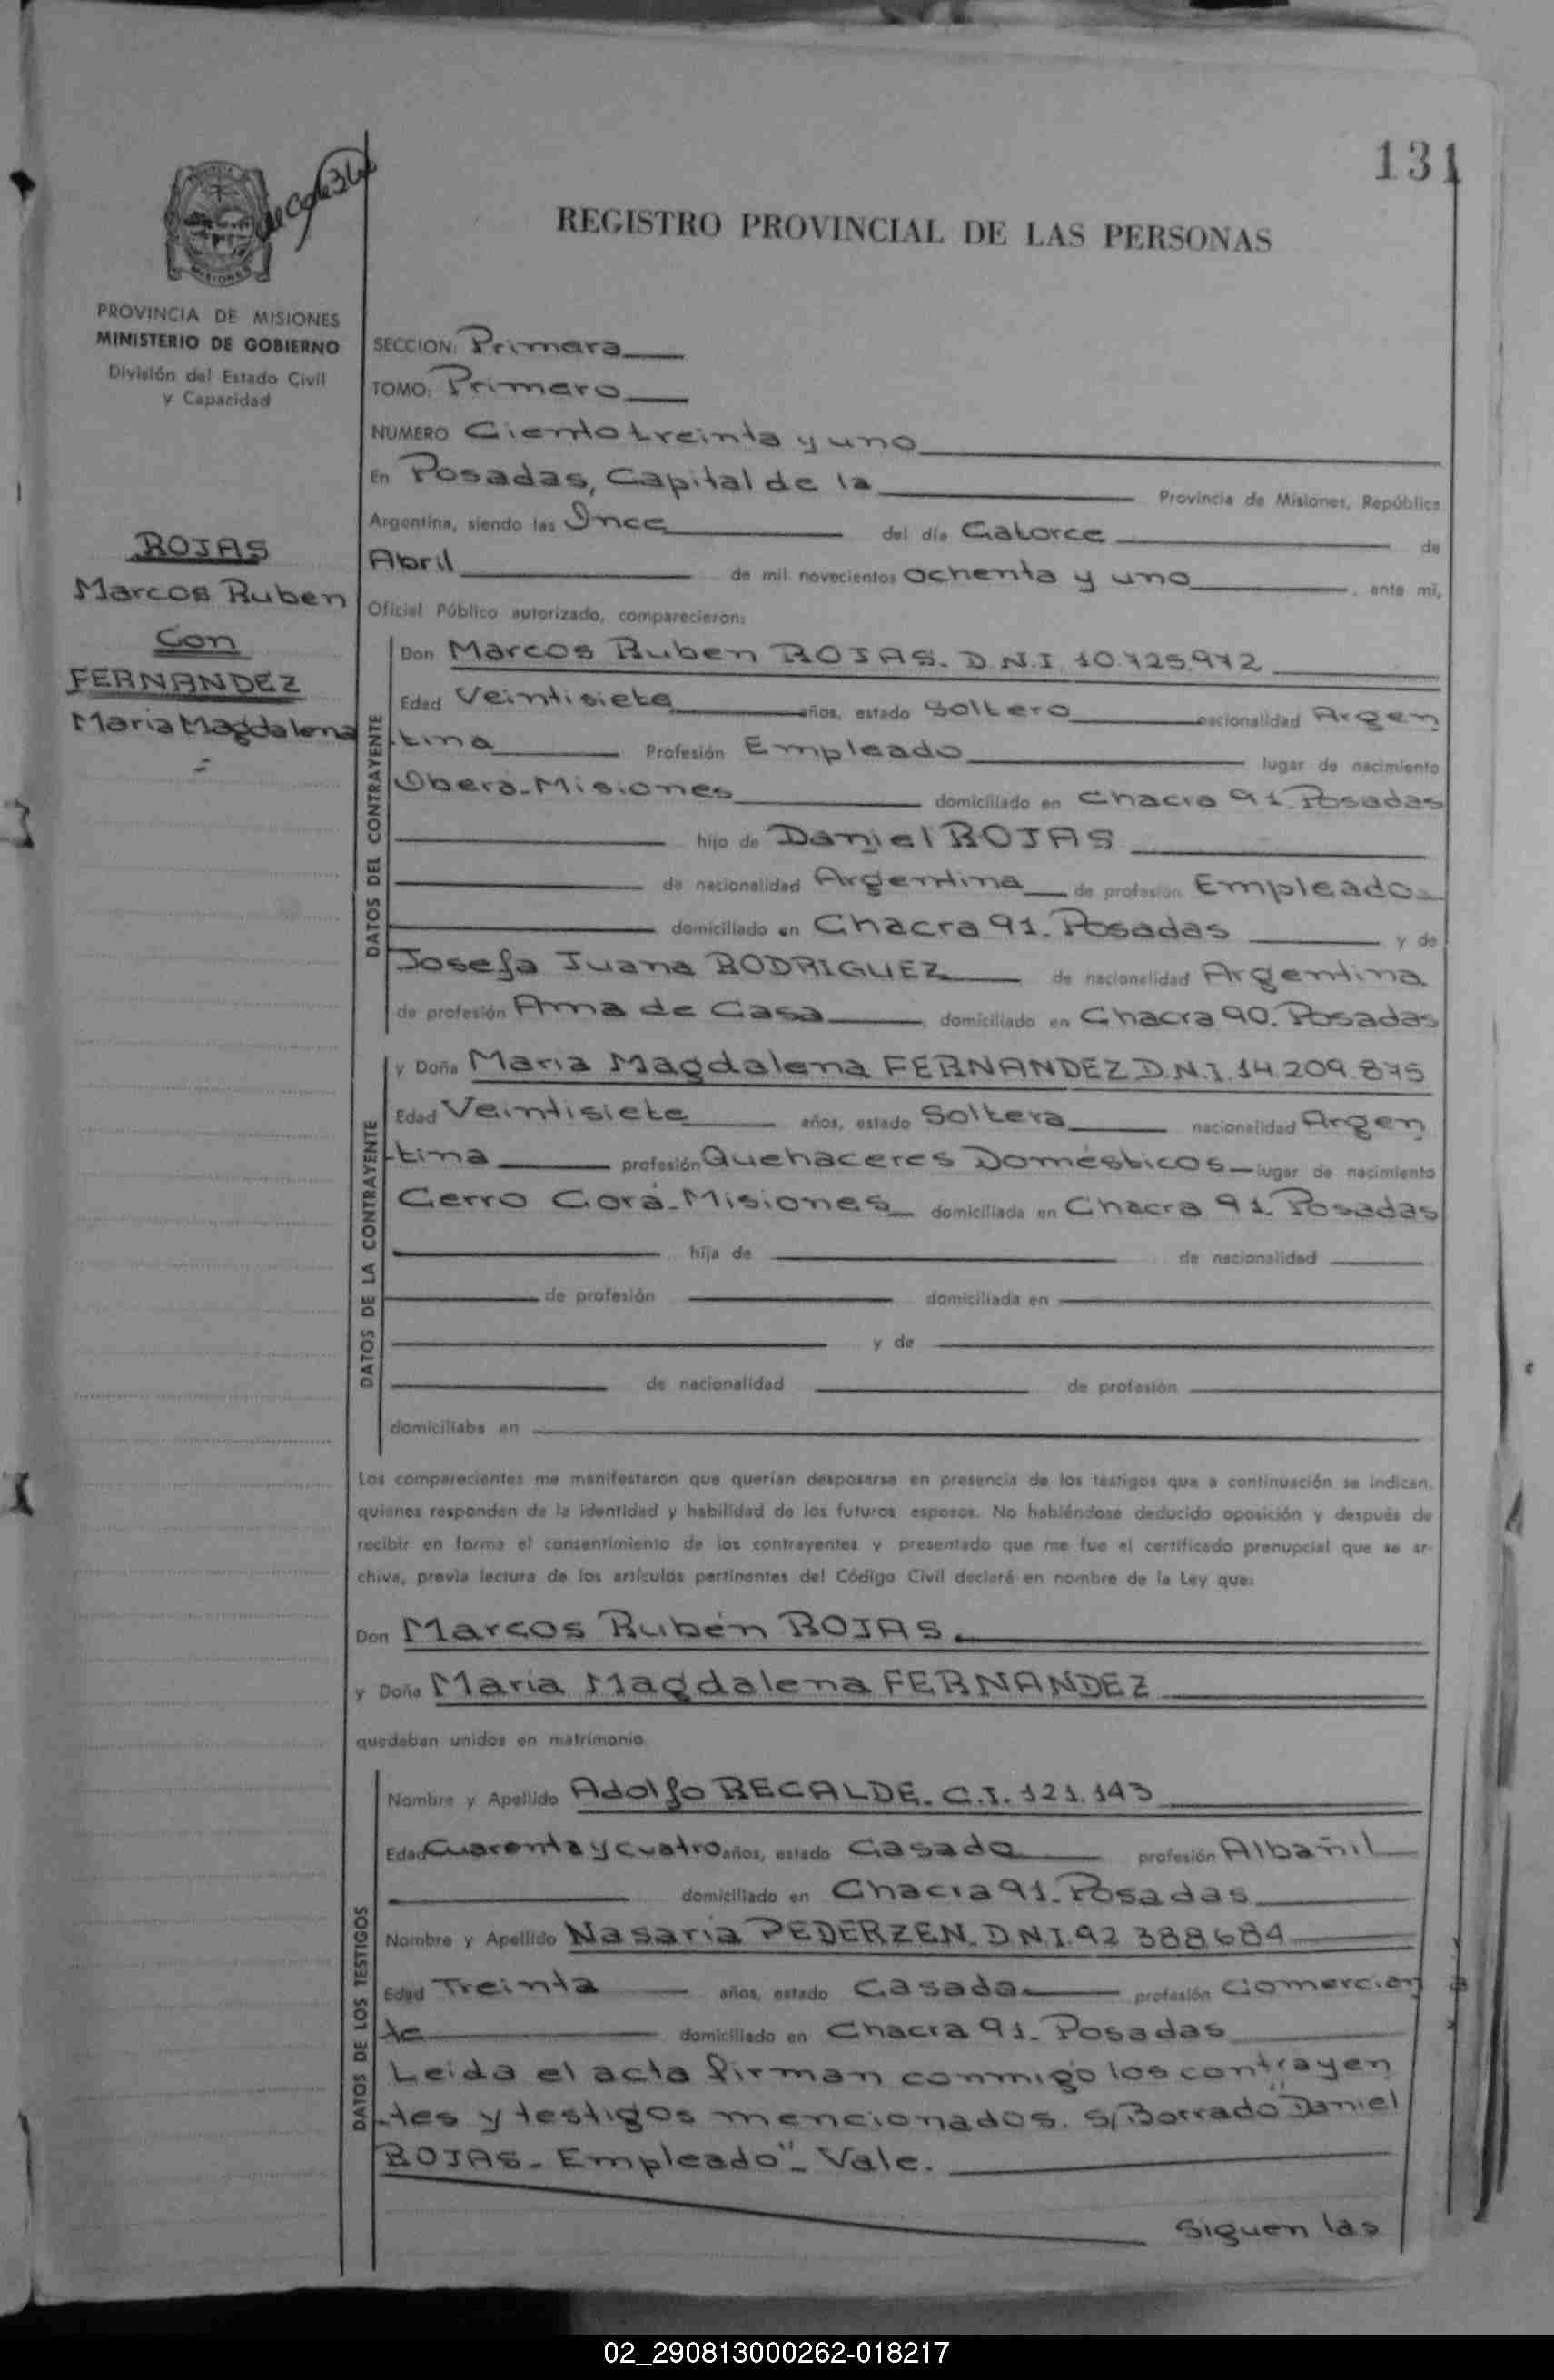 131
REGISTRO PROVINCIAL DE LAS PERSONAS
MISIONES
PROVINCIA DE MISIONES
MINISTERIO DE GOBIERNO
División del Estado Civil
y Capacidad
ROJAS
Marcos Ruben
Con
FERNANDEZ
Maria Magdalena
SECCION: Primera
TOMO: Primero
NUMERO Ciento treinta y uno
En Posadas, Capital de la Provincia de Misiones, República
Argentina, siendo las Once del día Catorce de
Abril de mil novecientos ochenta y uno, ante mí,
Oficial Público autorizado, comparecieron:
DATOS DEL CONTRAYENTE
Don Marcos Ruben ROJAS. D.N.I. 10.725.972
Edad Veintisiete años, estado Soltero nacionalidad Argen
tina Profesión Empleado lugar de nacimiento
Oberá-Misiones domiciliado en Chacra 91. Posadas
hijo de Daniel ROJAS
de nacionalidad Argentina de profesión Empleado
domiciliado en Chacra 91. Posadas y de
Josefa Juana RODRIGUEZ de nacionalidad Argentina
de profesión Ama de Casa domiciliado en Chacra 90. Posadas
DATOS DE LA CONTRAYENTE
y Doña Maria Magdalena FERNANDEZ D.N.I. 14.209.875
Edad Veintisiete años, estado Soltera nacionalidad Argen
tina profesión Quehaceres Domésticos lugar de nacimiento
Cerro Corá-Misiones domiciliada en Chacra 91. Posadas
hija de de nacionalidad
de profesión domiciliada en
y de
de nacionalidad de profesión
domiciliaba en
Los comparecientes me manifestaron que querían desposarse en presencia de los testigos que a continuación se indican,
quienes responden de la identidad y habilidad de los futuros esposos. No habiéndose deducido oposición y después de
recibir en forma el consentimiento de los contrayentes y presentado que me fue el certificado prenupcial que se ar-
chiva, previa lectura de los artículos pertinentes del Código Civil declaré en nombre de la Ley que:
Don Marcos Rubén ROJAS.
y Doña María Magdalena FERNANDEZ
quedaban unidos en matrimonio
DATOS DE LOS TESTIGOS
Nombre y Apellido Adolfo RECALDE. C.I. 121.143
Edad Cuarenta y cuatro años, estado Casado profesión Albañil
domiciliado en Chacra 91. Posadas
Nombre y Apellido Nasaria PEDERZEN. D.N.I. 92 388684
Edad Treinta años, estado Casada profesión Comercian
te domiciliado en Chacra 91. Posadas
Leida el acta firman conmigo los contrayen
tes y testigos mencionados. S/Borrado "Daniel
ROJAS - Empleado" - Vale.
Siguen las
02_290813000262-018217